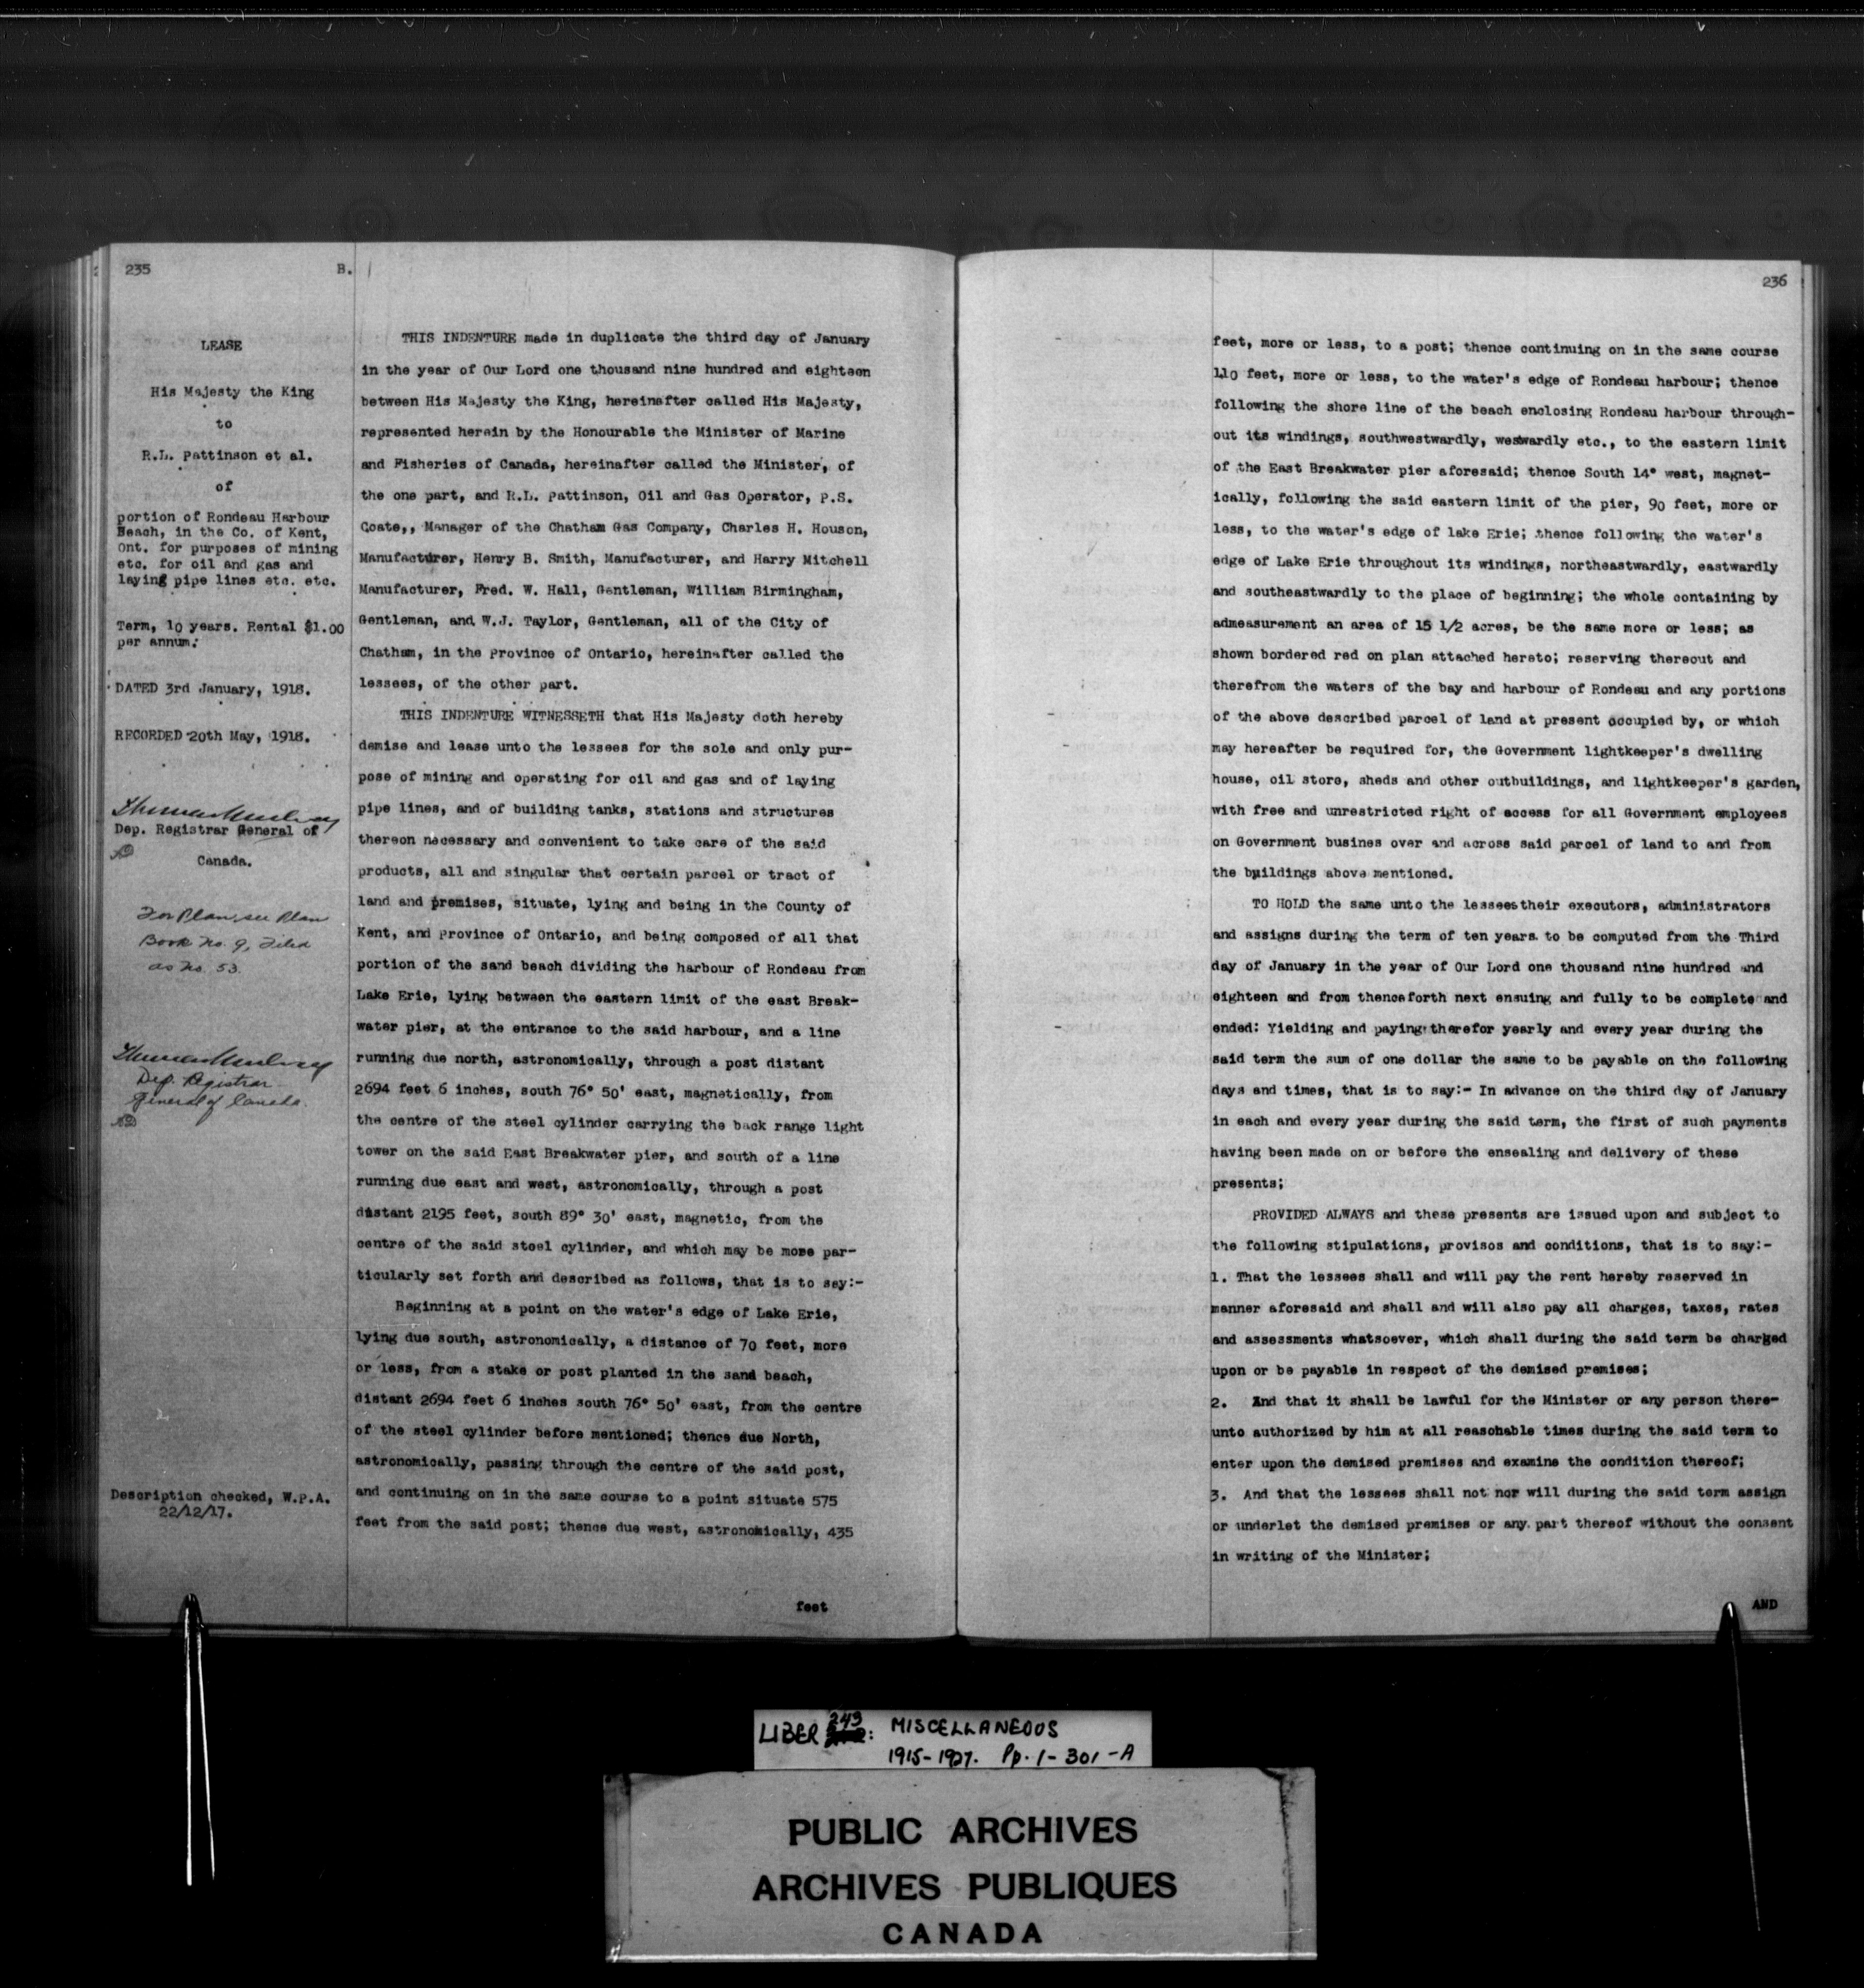 235
B.
LEASE
His Majesty the King
to
R.L. Pattinson et al.
of
portion of Rondeau Harbour
Beach, in the Co. of Kent,
Ont. for purposes of mining
etc. for oil and gas and
laying pipe lines etc. etc.
Term, 10 years. Rental $1.00
per annum.
DATED 3rd January, 1918.
RECORDED 20th May, 1918.
Dep. Registrar General of
Canada.
For Plan, see Plan
Book No. 9, Filed
as No. 53.
Dep. Registrar
General of Canada.
Description checked, W.P.A.
22/12/17.
THIS INDENTURE made in duplicate the third day of January
in the year of Our Lord one thousand nine hundred and eighteen
between His Majesty the King, hereinafter called His Majesty,
represented herein by the Honourable the Minister of Marine
and Fisheries of Canada, hereinafter called the Minister, of
the one part, and R.L. Pattinson, Oil and Gas Operator, P.S.
Coate,, Manager of the Chatham Gas Company, Charles H. Houson,
Manufacturer, Henry B. Smith, Manufacturer, and Harry Mitchell
Manufacturer, Fred. W. Hall, Gentleman, William Birmingham,
Gentleman, and W.J. Taylor, Gentleman, all of the City of
Chatham, in the Province of Ontario, hereinafter called the
lessees, of the other part.
THIS INDENTURE WITNESSETH that His Majesty doth hereby
demise and lease unto the lessees for the sole and only pur-
pose of mining and operating for oil and gas and of laying
pipe lines, and of building tanks, stations and structures
thereon necessary and convenient to take care of the said
products, all and singular that certain parcel or tract of
land and premises, situate, lying and being in the County of
Kent, and Province of Ontario, and being composed of all that
portion of the sand beach dividing the harbour of Rondeau from
Lake Erie, lying between the eastern limit of the east Break-
water pier, at the entrance to the said harbour, and a line
running due north, astronomically, through a post distant
2694 feet 6 inches, south 76° 50' east, magnetically, from
the centre of the steel cylinder carrying the back range light
tower on the said East Breakwater pier, and south of a line
running due east and west, astronomically, through a post
distant 2195 feet, south 89° 30' east, magnetic, from the
centre of the said steel cylinder, and which may be more par-
ticularly set forth and described as follows, that is to say:-
Beginning at a point on the water's edge of Lake Erie,
lying due south, astronomically, a distance of 70 feet, more
or less, from a stake or post planted in the sand beach,
distant 2694 feet 6 inches south 76° 50' east, from the centre
of the steel cylinder before mentioned; thence due North,
astronomically, passing through the centre of the said post,
and continuing on in the same course to a point situate 575
feet from the said post; thence due west, astronomically, 435
feet
236
feet, more or less, to a post; thence continuing on in the same course
110 feet, more or less, to the water's edge of Rondeau harbour; thence
following the shore line of the beach enclosing Rondeau harbour through-
out its windings, southwestwardly, westwardly etc., to the eastern limit
of the East Breakwater pier aforesaid; thence South 14° west, magnet-
ically, following the said eastern limit of the pier, 90 feet, more or
less, to the water's edge of lake Erie; thence following the water's
edge of Lake Erie throughout its windings, northeastwardly, eastwardly
and southeastwardly to the place of beginning; the whole containing by
admeasurement an area of 15 1/2 acres, be the same more or less; as
shown bordered red on plan attached hereto; reserving thereout and
therefrom the waters of the bay and harbour of Rondeau and any portions
of the above described parcel of land at present occupied by, or which
may hereafter be required for, the Government lightkeeper's dwelling
house, oil store, sheds and other outbuildings, and lightkeeper's garden,
with free and unrestricted right of access for all Government employees
on Government busines over and across said parcel of land to and from
the buildings above mentioned.
TO HOLD the same unto the lessees their executors, administrators
and assigns during the term of ten years to be computed from the Third
day of January in the year of Our Lord one thousand nine hundred and
eighteen and from thenceforth next ensuing and fully to be complete and
ended: Yielding and paying therefor yearly and every year during the
said term the sum of one dollar the same to be payable on the following
days and times, that is to say:- In advance on the third day of January
in each and every year during the said term, the first of such payments
having been made on or before the ensealing and delivery of these
presents;
PROVIDED ALWAYS and these presents are issued upon and subject to
the following stipulations, provisos and conditions, that is to say:-
1. That the lessees shall and will pay the rent hereby reserved in
manner aforesaid and shall and will also pay all charges, taxes, rates
and assessments whatsoever, which shall during the said term be charged
upon or be payable in respect of the demised premises;
2. And that it shall be lawful for the Minister or any person there-
unto authorized by him at all reasonable times during the said term to
enter upon the demised premises and examine the condition thereof;
3. And that the lessees shall not nor will during the said term assign
or underlet the demised premises or any part thereof without the consent
in writing of the Minister;
AND
LIBER 243: MISCELLANEOUS
1915-1927. Pp. 1-301-A
PUBLIC ARCHIVES
ARCHIVES PUBLIQUES
CANADA